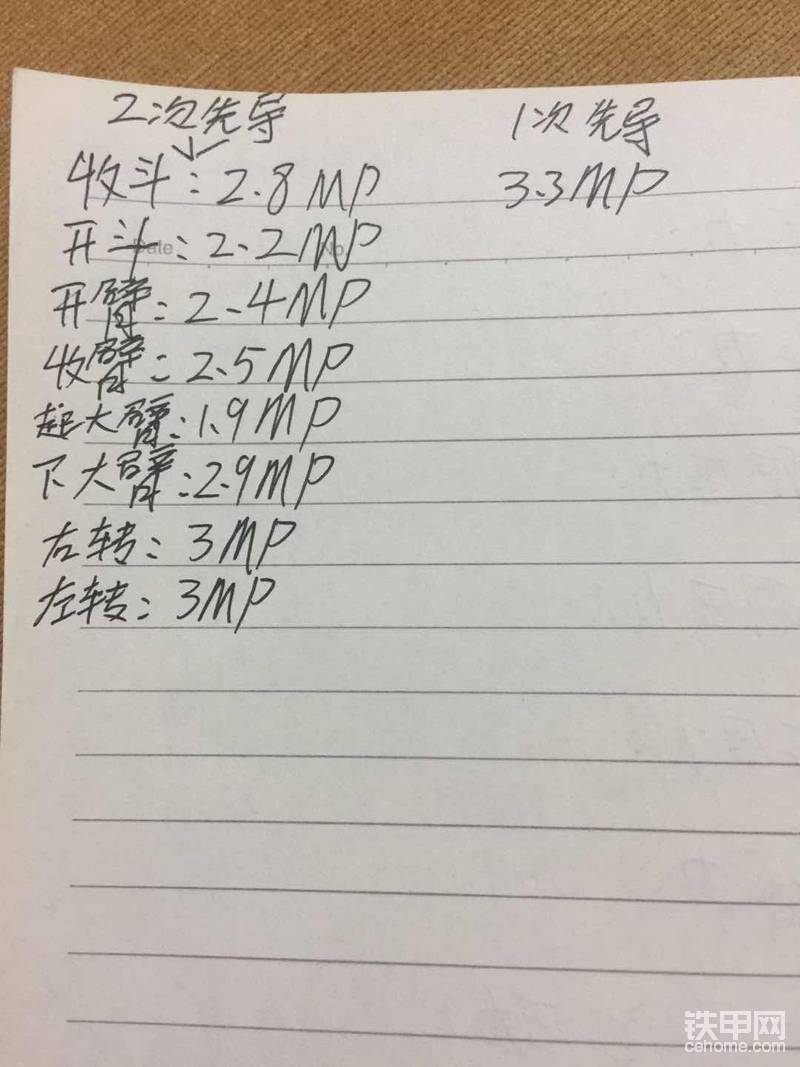 2次先导
1次先导
收斗:2.8MP
3.3MP
开斗:2.2MP
开臂:2.4MP
收臂:2.5MP
起大臂:1.9MP
下大臂:2.9MP
右转:3MP
左转:3MP
Date
No
铁甲网
cehome.com